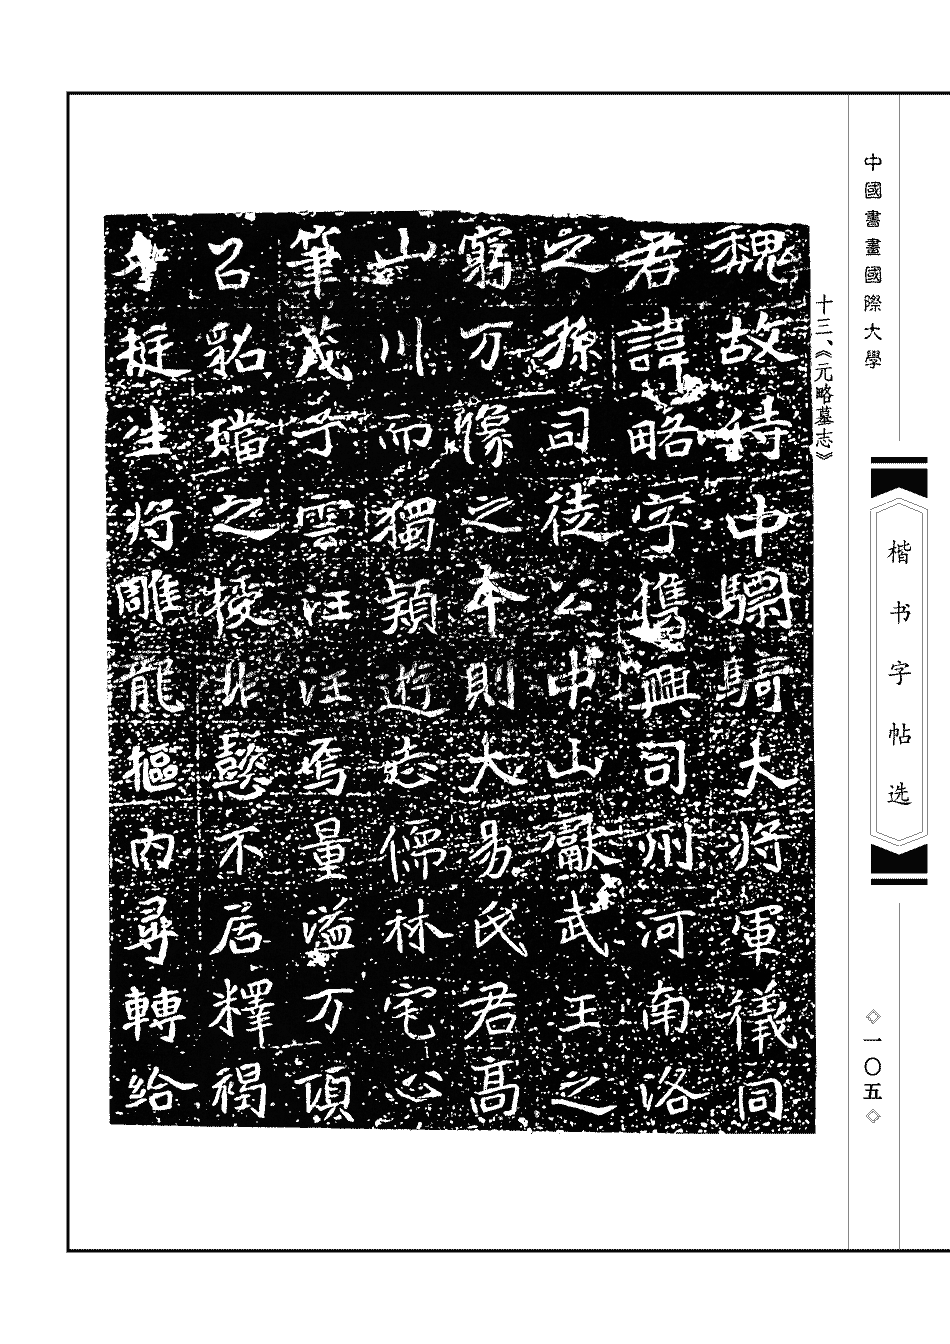 中國書畫國際大學
楷书字帖选
◇一〇五◇
十三、《元略墓志》
魏故侍中驃騎大將軍儀同
君諱略字儁興司州河南洛
之孫司徒公中山獻武王之
窮万像之本則大易君高
山川而獨穎遊志儒林宅心
筆茂子雲汪汪焉量溢万頃
召貂璫之授非懿不居釋褐
挺生將雕龍樞內尋轉給